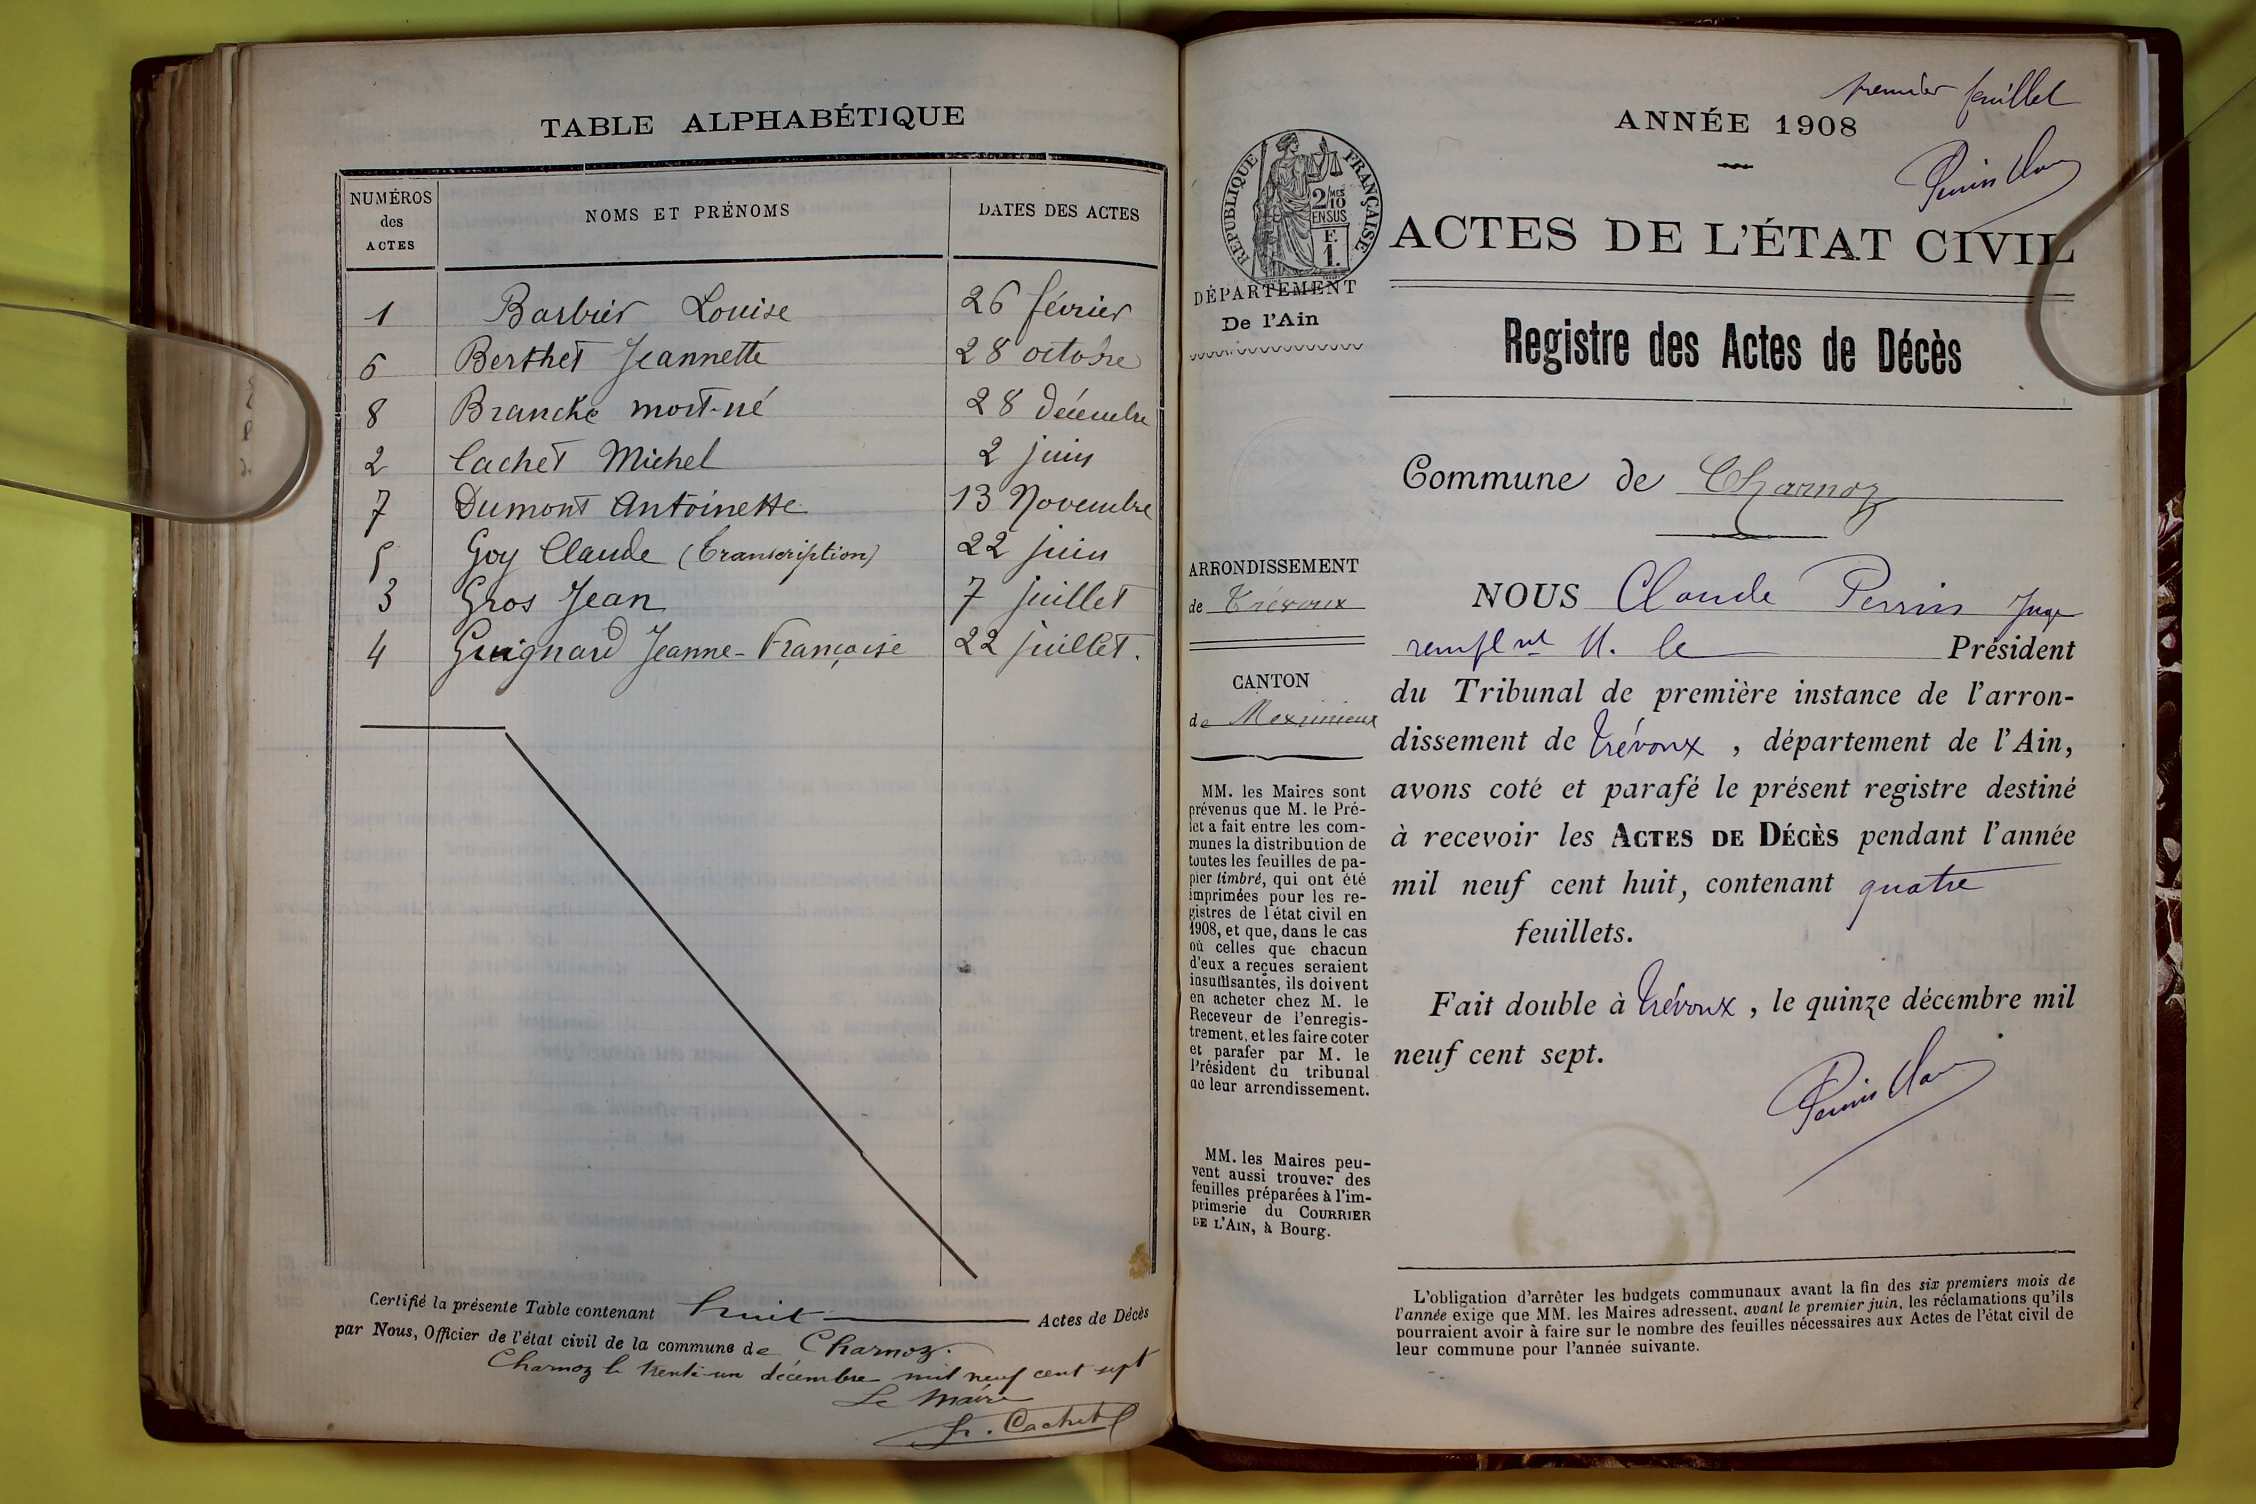 TABLE ALPHABÉTIQUE
NUMÉROS
des
ACTES
NOMS ET PRÉNOMS
DATES DES ACTES
1 Barbier Louise 26 février
6 Berthet Jeannette 28 octobre
8 Branche mort-né 28 décembre
2 Cachet Michel 2 juin
7 Dumont Antoinette 13 Novembre
5 Goy Claude (transcription) 22 juin
3 Gros Jean 7 juillet
4 Guignard Jeanne-Françoise 22 juillet.
Certifié la présente Table contenant huit Actes de Décès
par Nous, Officier de l'état civil de la commune de Charnoz.
Charnoz le trente-un décembre mil neuf cent sept
Le Maire
Cachet
premier feuillet
ANNÉE 1908
RÉPUBLIQUE FRANÇAISE
2/10
MES
EN SUS
F.
1.
ACTES DE L'ÉTAT CIVIL
DÉPARTEMENT
De l'Ain
Registre des Actes de Décès
Commune de Charnoz
ARRONDISSEMENT
de Trévoux
CANTON
de Meximieux
MM. les Maires sont
prévenus que M. le Pré-
fet a fait entre les com-
munes la distribution de
toutes les feuilles de pa-
pier timbré, qui ont été
imprimées pour les re-
gistres de l'état civil en
1908, et que, dans le cas
où celles que chacun
d'eux a reçues seraient
insuffisantes, ils doivent
en acheter chez M. le
Receveur de l'enregis-
trement, et les faire coter
et parafer par M. le
Président du tribunal
de leur arrondissement.
MM. les Maires peu-
vent aussi trouver des
feuilles préparées à l'im-
primerie du COURRIER
DE L'AIN, à Bourg.
NOUS Claude Perrin Juge
rempl nt M. le Président
du Tribunal de première instance de l'arron-
dissement de Trévoux, département de l'Ain,
avons coté et parafé le présent registre destiné
à recevoir les ACTES DE DÉCÈS pendant l'année
mil neuf cent huit, contenant quatre
feuillets.
Fait double à Trévoux, le quinze décembre mil
neuf cent sept.
L'obligation d'arrêter les budgets communaux avant la fin des six premiers mois de
l'année exige que MM. les Maires adressent, avant le premier juin, les réclamations qu'ils
pourraient avoir à faire sur le nombre des feuilles nécessaires aux Actes de l'état civil de
leur commune pour l'année suivante.